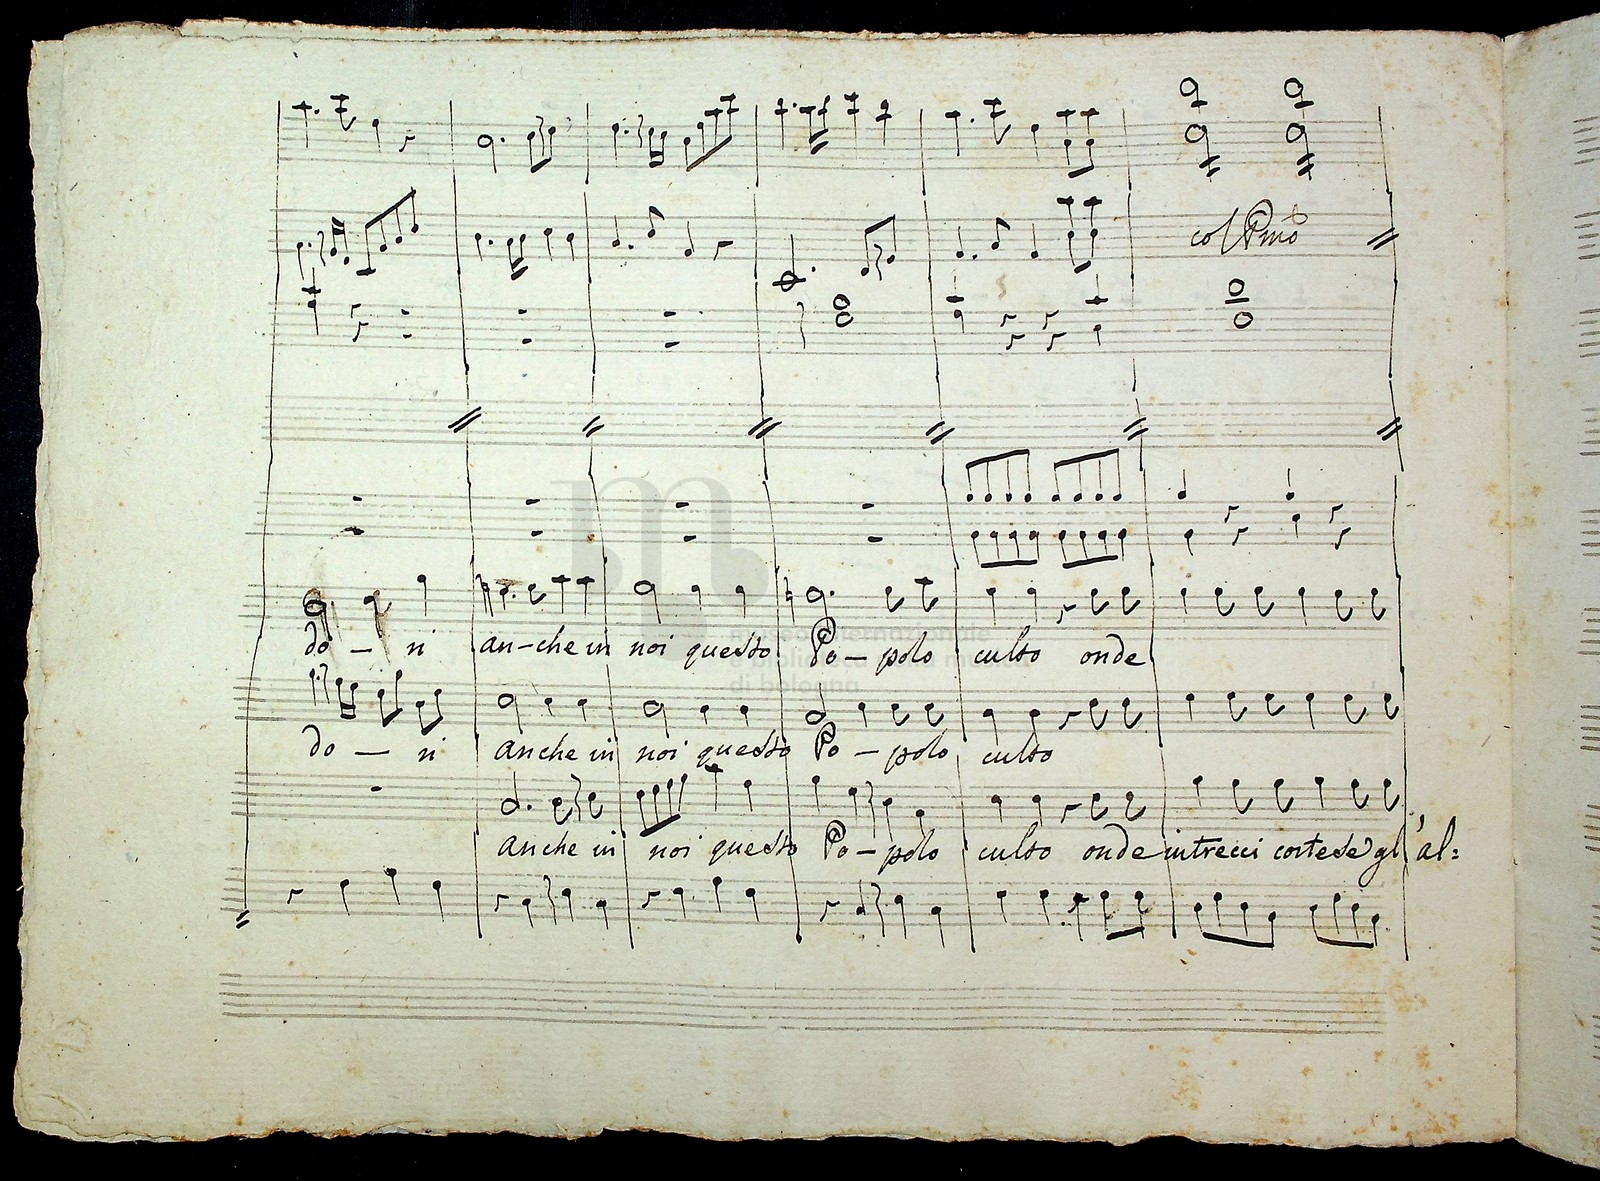 col Pmo
do — ni an-che in noi questo Po — polo culto onde
museo internazionale
e biblioteca della musica
di bologna
do — ni anche in noi questo Po — polo culto
anche in noi questo Po — polo culto onde intrecci cortese gl'al=